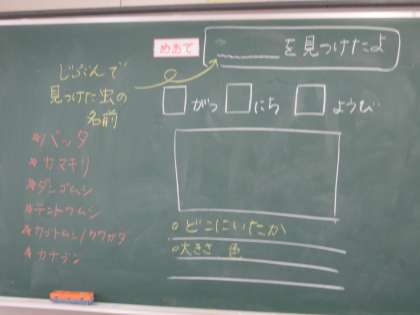 めあて
を見つけたよ
じぶんで
見つけた虫の
名前
がつ にち ようび
バッタ
カマキリ
ダンゴムシ
テントウムシ
カブトムシ/クワガタ
カナブン
どこにいたか
大きさ 色